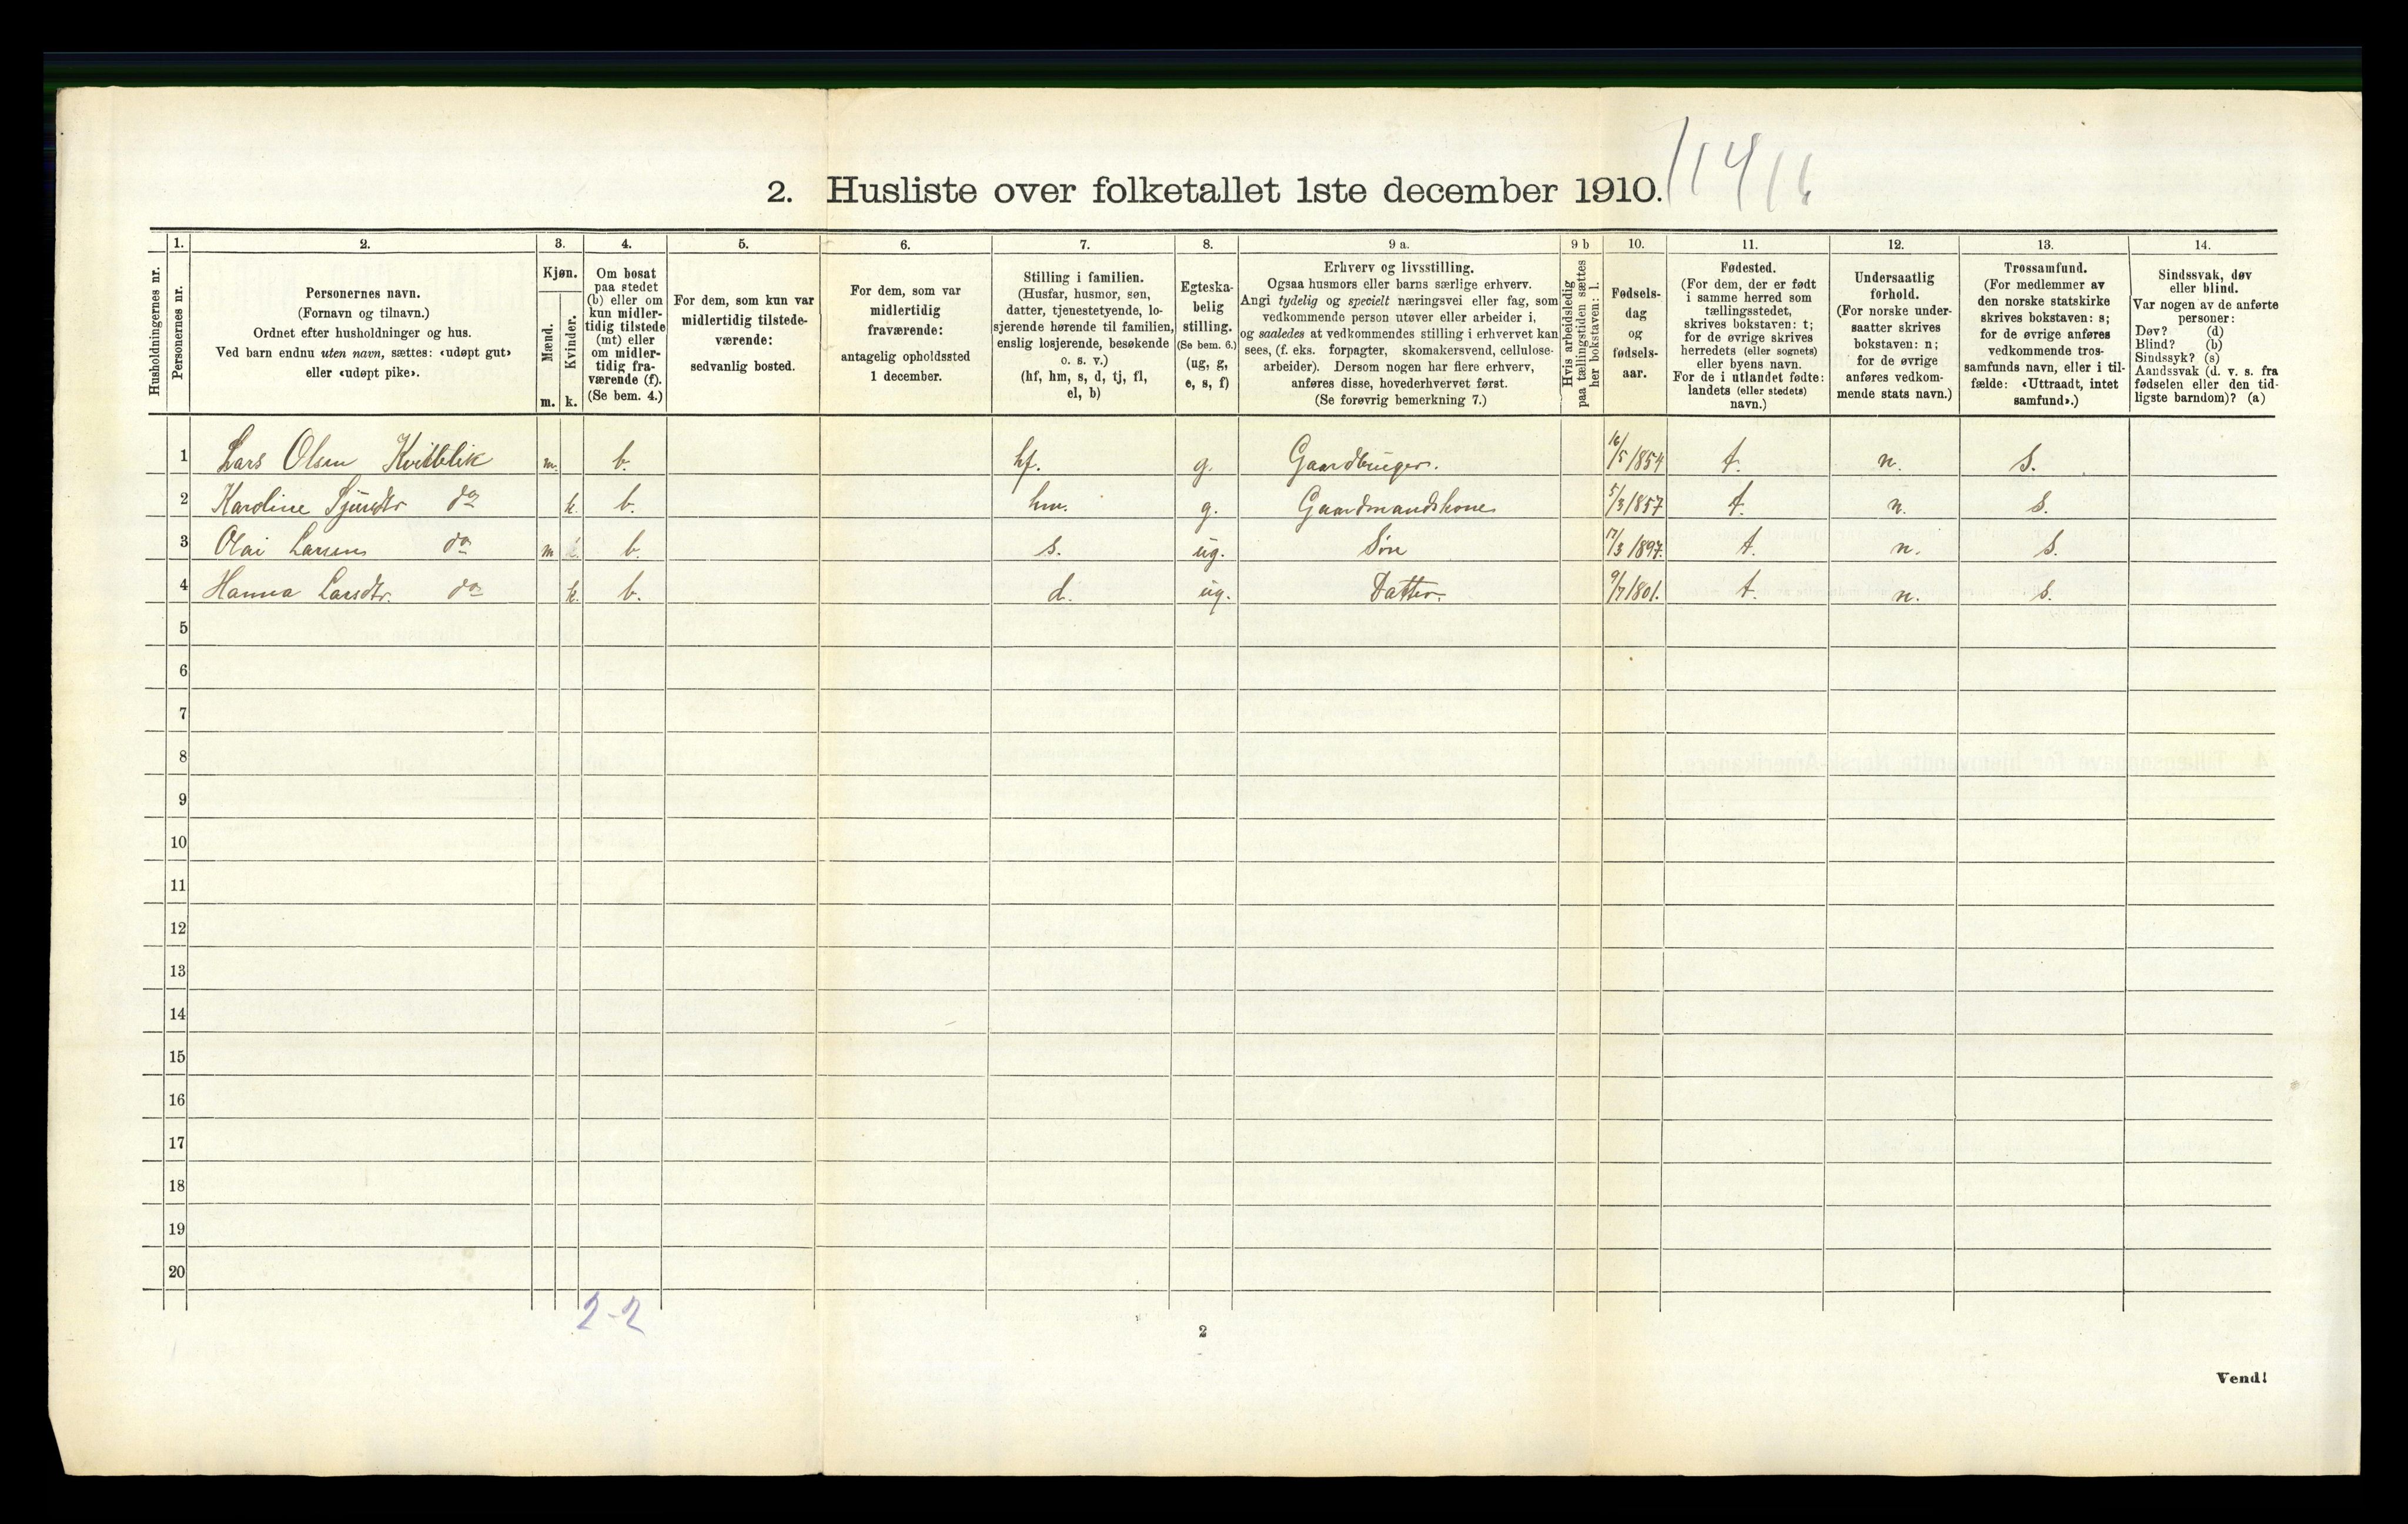 2. Husliste over folketallet 1ste december 1910.
Husholdningernes nr.
1.
Personernes nr.
2.
Personernes navn.
(Fornavn og tilnavn.)
Ordnet efter husholdninger og hus.
Ved barn endnu uten navn, sættes: «udøpt gut»
eller «udøpt pike».
3.
Kjøn.
Mænd.
Kvinder.
m. k.
4.
Om bosat
paa stedet
(b) eller om
kun midler-
tidig tilstede
(mt) eller
om midler-
tidig fra-
værende (f).
(Se bem. 4.)
5.
For dem, som kun var
midlertidig tilstede-
værende:
sedvanlig bosted.
6.
For dem, som var
midlertidig
fraværende:
antagelig opholdssted
1 december.
7.
Stilling i familien.
(Husfar, husmor, søn,
datter, tjenestetyende, lo-
sjerende hørende til familien,
enslig losjerende, besøkende
o. s. v.)
(hf, hm, s, d, tj, fl,
el, b)
8.
Egteska-
belig
stilling.
(Se bem. 6.)
(ug, g,
e, s, f)
9 a.
Erhverv og livsstilling.
Ogsaa husmors eller barns særlige erhverv.
Angi tydelig og specielt næringsvei eller fag, som
vedkommende person utøver eller arbeider i,
og saaledes at vedkommendes stilling i erhvervet kan
sees, (f. eks. forpagter, skomakersvend, cellulose-
arbeider). Dersom nogen har flere erhverv,
anføres disse, hovederhvervet først.
(Se forøvrig bemerkning 7.)
9 b
Hvis arbeidsledig
paa tællingstiden sættes
her bokstaven: l.
10.
Fødsels-
dag
og
fødsels-
aar.
11.
Fødested.
(For dem, der er født
i samme herred som
tællingsstedet,
skrives bokstaven: t;
for de øvrige skrives
herredets (eller sognets)
eller byens navn.
For de i utlandet fødte:
landets (eller stedets)
navn.)
12.
Undersaatlig
forhold.
(For norske under-
saatter skrives
bokstaven: n;
for de øvrige
anføres vedkom-
mende stats navn.)
13.
Trossamfund.
(For medlemmer av
den norske statskirke
skrives bokstaven: s;
for de øvrige anføres
vedkommende tros-
samfunds navn, eller i til-
fælde: «Uttraadt, intet
samfund».)
14.
Sindssvak, døv
eller blind.
Var nogen av de anførte
personer:
Døv? (d)
Blind? (b)
Sindssyk? (s)
Aandssvak (d. v. s. fra
fødselen eller den tid-
ligste barndom)? (a)
1 Lars Olsen Kvitblik m. b. hf. g. Gaardbruger. 16/5 1854 t. n. s.
2 Karoline Sjursdtr do k. b. hm. g. Gaardmandskone 5/3 1857 t. n. s.
3 Olai Larsen do m b. s. ug. Søn 17/3 1897. t. n. s.
4 Hanna Larsdtr. do k. b. d. ug. Datter. 9/7 1801. t. n. s.
5
6
7
8
9
10
11
12
13
14
15
16
17
18
19
20
2-2
2
Vend!